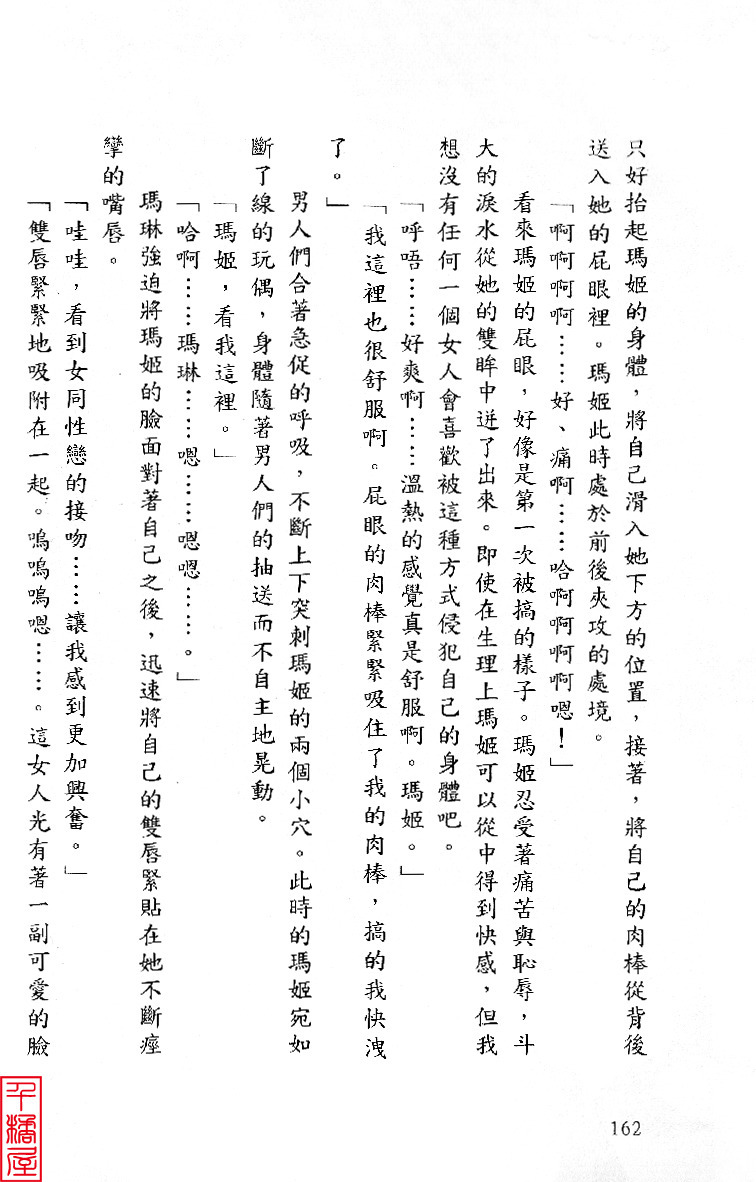 只好抬起瑪姬的身體，將自己滑入她下方的位置，接著，將自己的肉棒從背後
送入她的屁眼裡。瑪姬此時處於前後夾攻的處境。
「啊啊啊啊……好、痛啊……哈啊啊啊啊嗯！」
看來瑪姬的屁眼，好像是第一次被搞的樣子。瑪姬忍受著痛苦與恥辱，斗
大的淚水從她的雙眸中迸了出來。即使在生理上瑪姬可以從中得到快感，但我
想沒有任何一個女人會喜歡被這種方式侵犯自己的身體吧。
「呼唔……好爽啊……溫熱的感覺真是舒服啊。瑪姬。」
「我這裡也很舒服啊。屁眼的肉棒緊緊吸住了我的肉棒，搞的我快洩
了。」
男人們合著急促的呼吸，不斷上下突刺瑪姬的兩個小穴。此時的瑪姬宛如
斷了線的玩偶，身體隨著男人們的抽送而不自主地晃動。
「瑪姬，看我這裡。」
「哈啊……瑪琳……嗯……嗯嗯……。」
瑪琳強迫將瑪姬的臉面對著自己之後，迅速將自己的雙唇緊貼在她不斷痙
攣的嘴唇。
「哇哇，看到女同性戀的接吻……讓我感到更加興奮。」
「雙唇緊緊地吸附在一起。嗚嗚嗚嗯……。這女人光有著一副可愛的臉
162